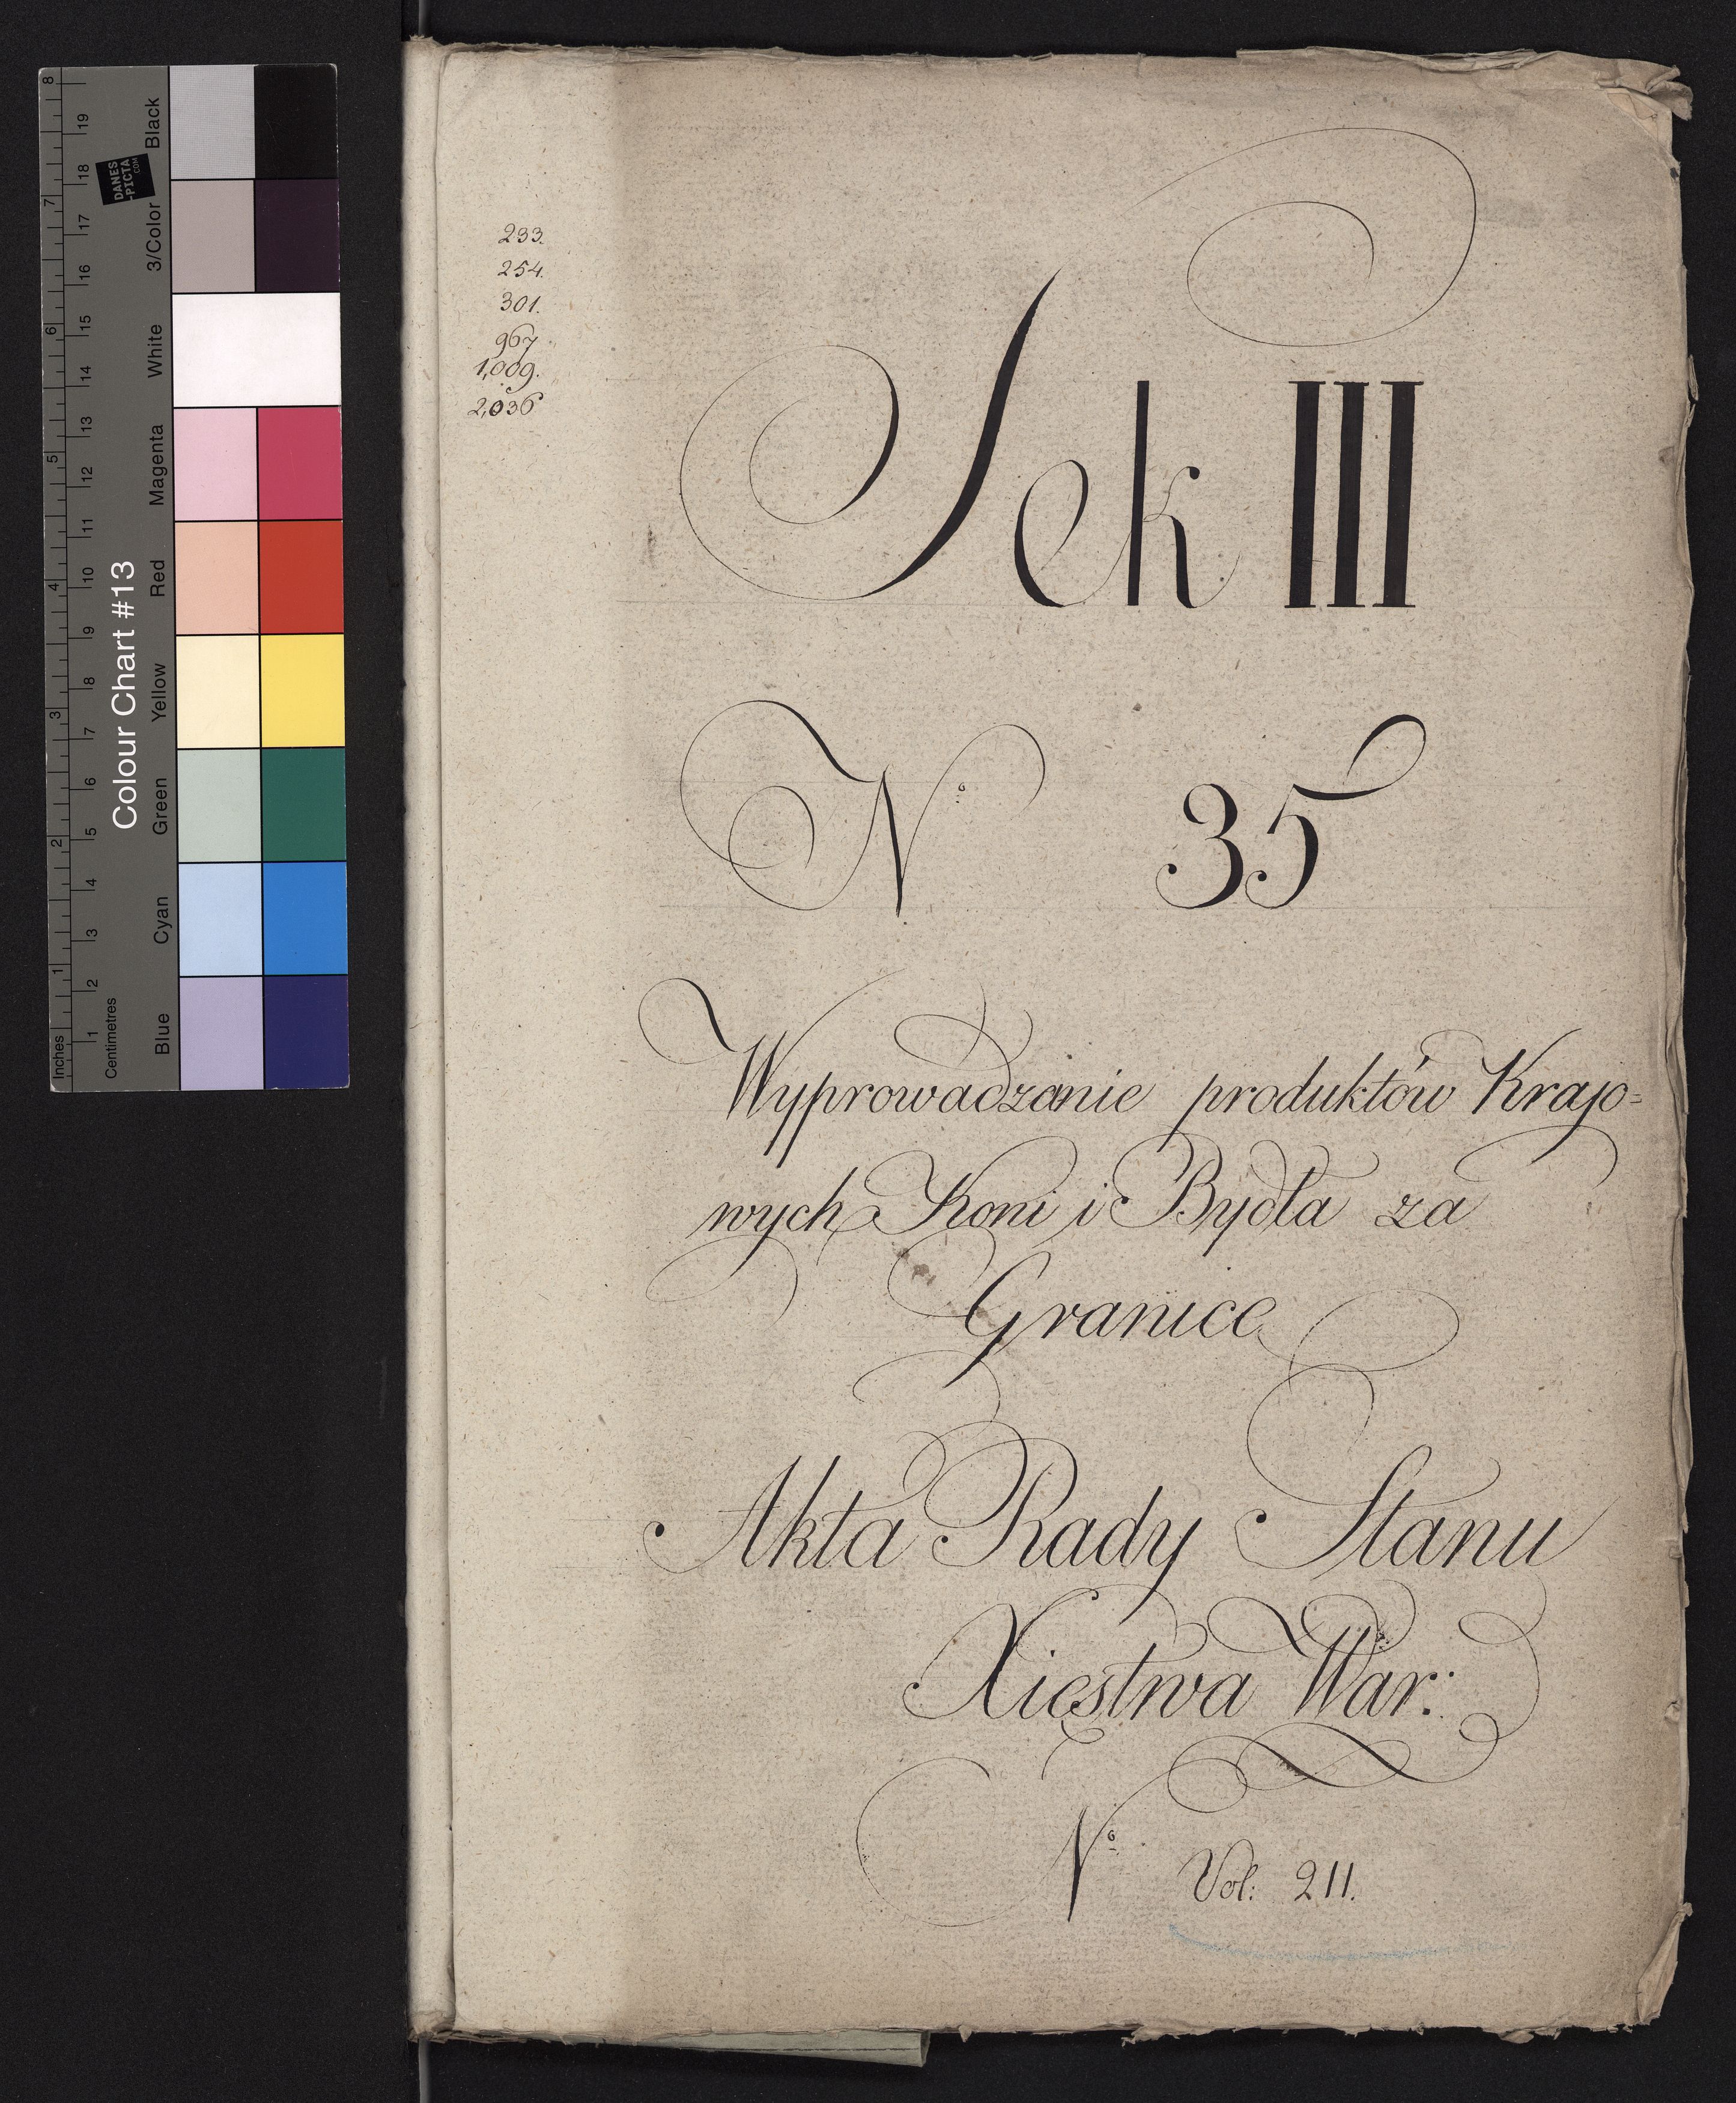 233.
254.
301.
967.
1,009.
2,036
Sek III
Nº 35
Wyprowadzanie produktów Krajo=
wych Koni i Bydła za
Granice
Akta Rady Stanu
Xięstwa War:
Nº Vol: 211.
Colour Chart #13
Blue Cyan Green Yellow Red Magenta White 3/Color Black
Inches 1 2 3 4 5 6 7 8
Centimetres 1 2 3 4 5 6 7 8 9 10 11 12 13 14 15 16 17 18 19
DANES
-PICTA
.COM